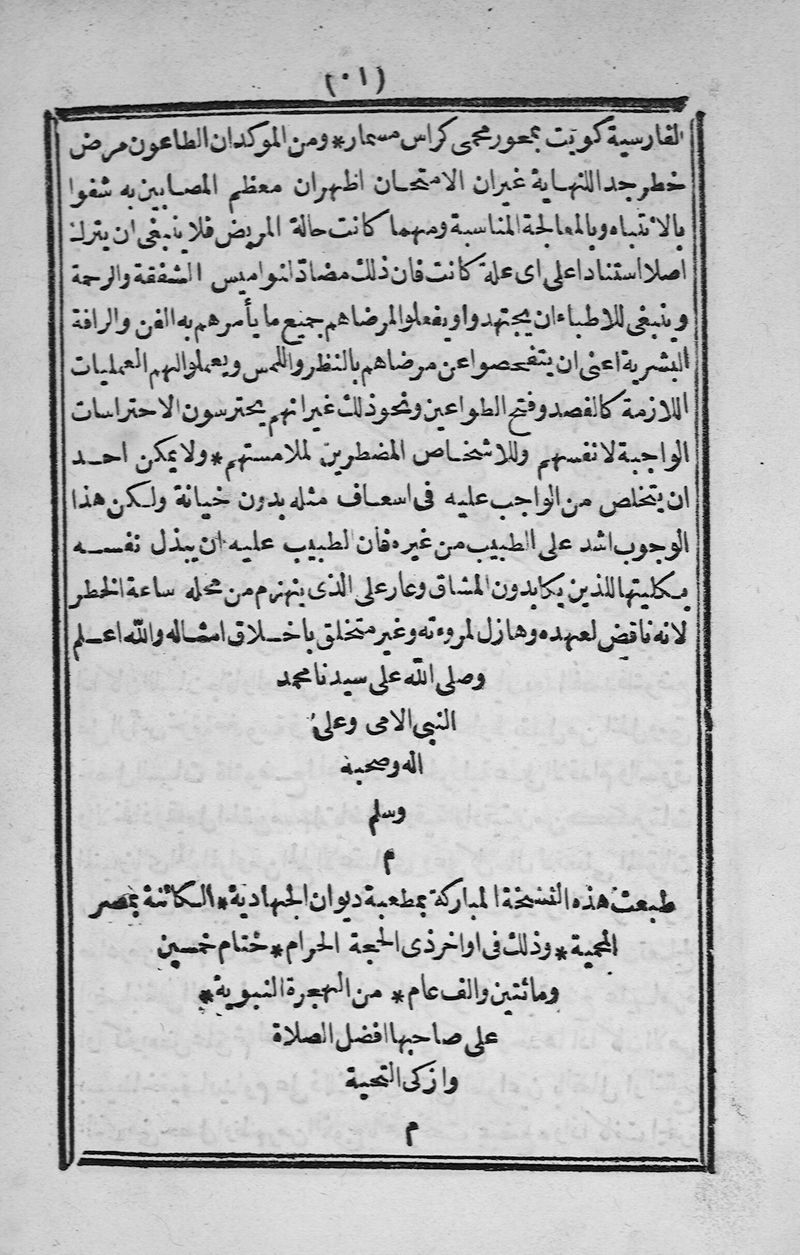 (٠١)
الفارسية كويت بمعور محمى كراس مسمار * ومن الموكد ان الطاعون مرض
خطر جد اللنهاية غير ان الامتحان اظهر ان معظم المصابين به شفوا
بالانتباه وبالمعالجة المناسبة ومهما كانت حالة المريض فلا ينبغى ان يترك
اصلا استنادا على اى علة كانت فان ذلك مضاد لنواميس الشفقة والرحمة
وينبغى للاطباء ان يجتهدوا ويفعلوا لمرضاهم جميع ما يأمرهم به الفن والرافة
البشرية اعنى ان يتفحصوا عن مرضاهم بالنظر واللمس ويعملوا لهم العمليات
اللازمة كالفصد وفتح الطواعين ونحو ذلك غير انهم يحترسون الاحتراسات
الواجبة لانفسهم وللاشخاص المضطرين لملامستهم * ولا يمكن احد
ان يتخلص من الواجب عليه فى اسعاف مثله بدون خيانة ولكن هذا
الوجوب اشد على الطبيب من غيره فان لطبيب عليه ان يبذل نفسه
بكليتها للذين يكابدون المشاق وعار على الذى ينهزم من محله ساعة الخطر
لانه ناقض لعهده وهازل لمروءته وغير متخلق باخلاق امثاله والله اعلم
وصلى الله على سيدنا محمد
النبى الامى وعلى
اله وصحبه
وسلم
م
طبعت هذه النسخة المباركة بمطعبة ديوان الجهادية * الكائنة بمصر
المحمية * وذلك فى اواخر ذى الحجة الحرام * ختام خمسين
ومائتين والف عام * من الهجرة النبوية *
على صاحبها افضل الصلاة
وازكى التحية
م